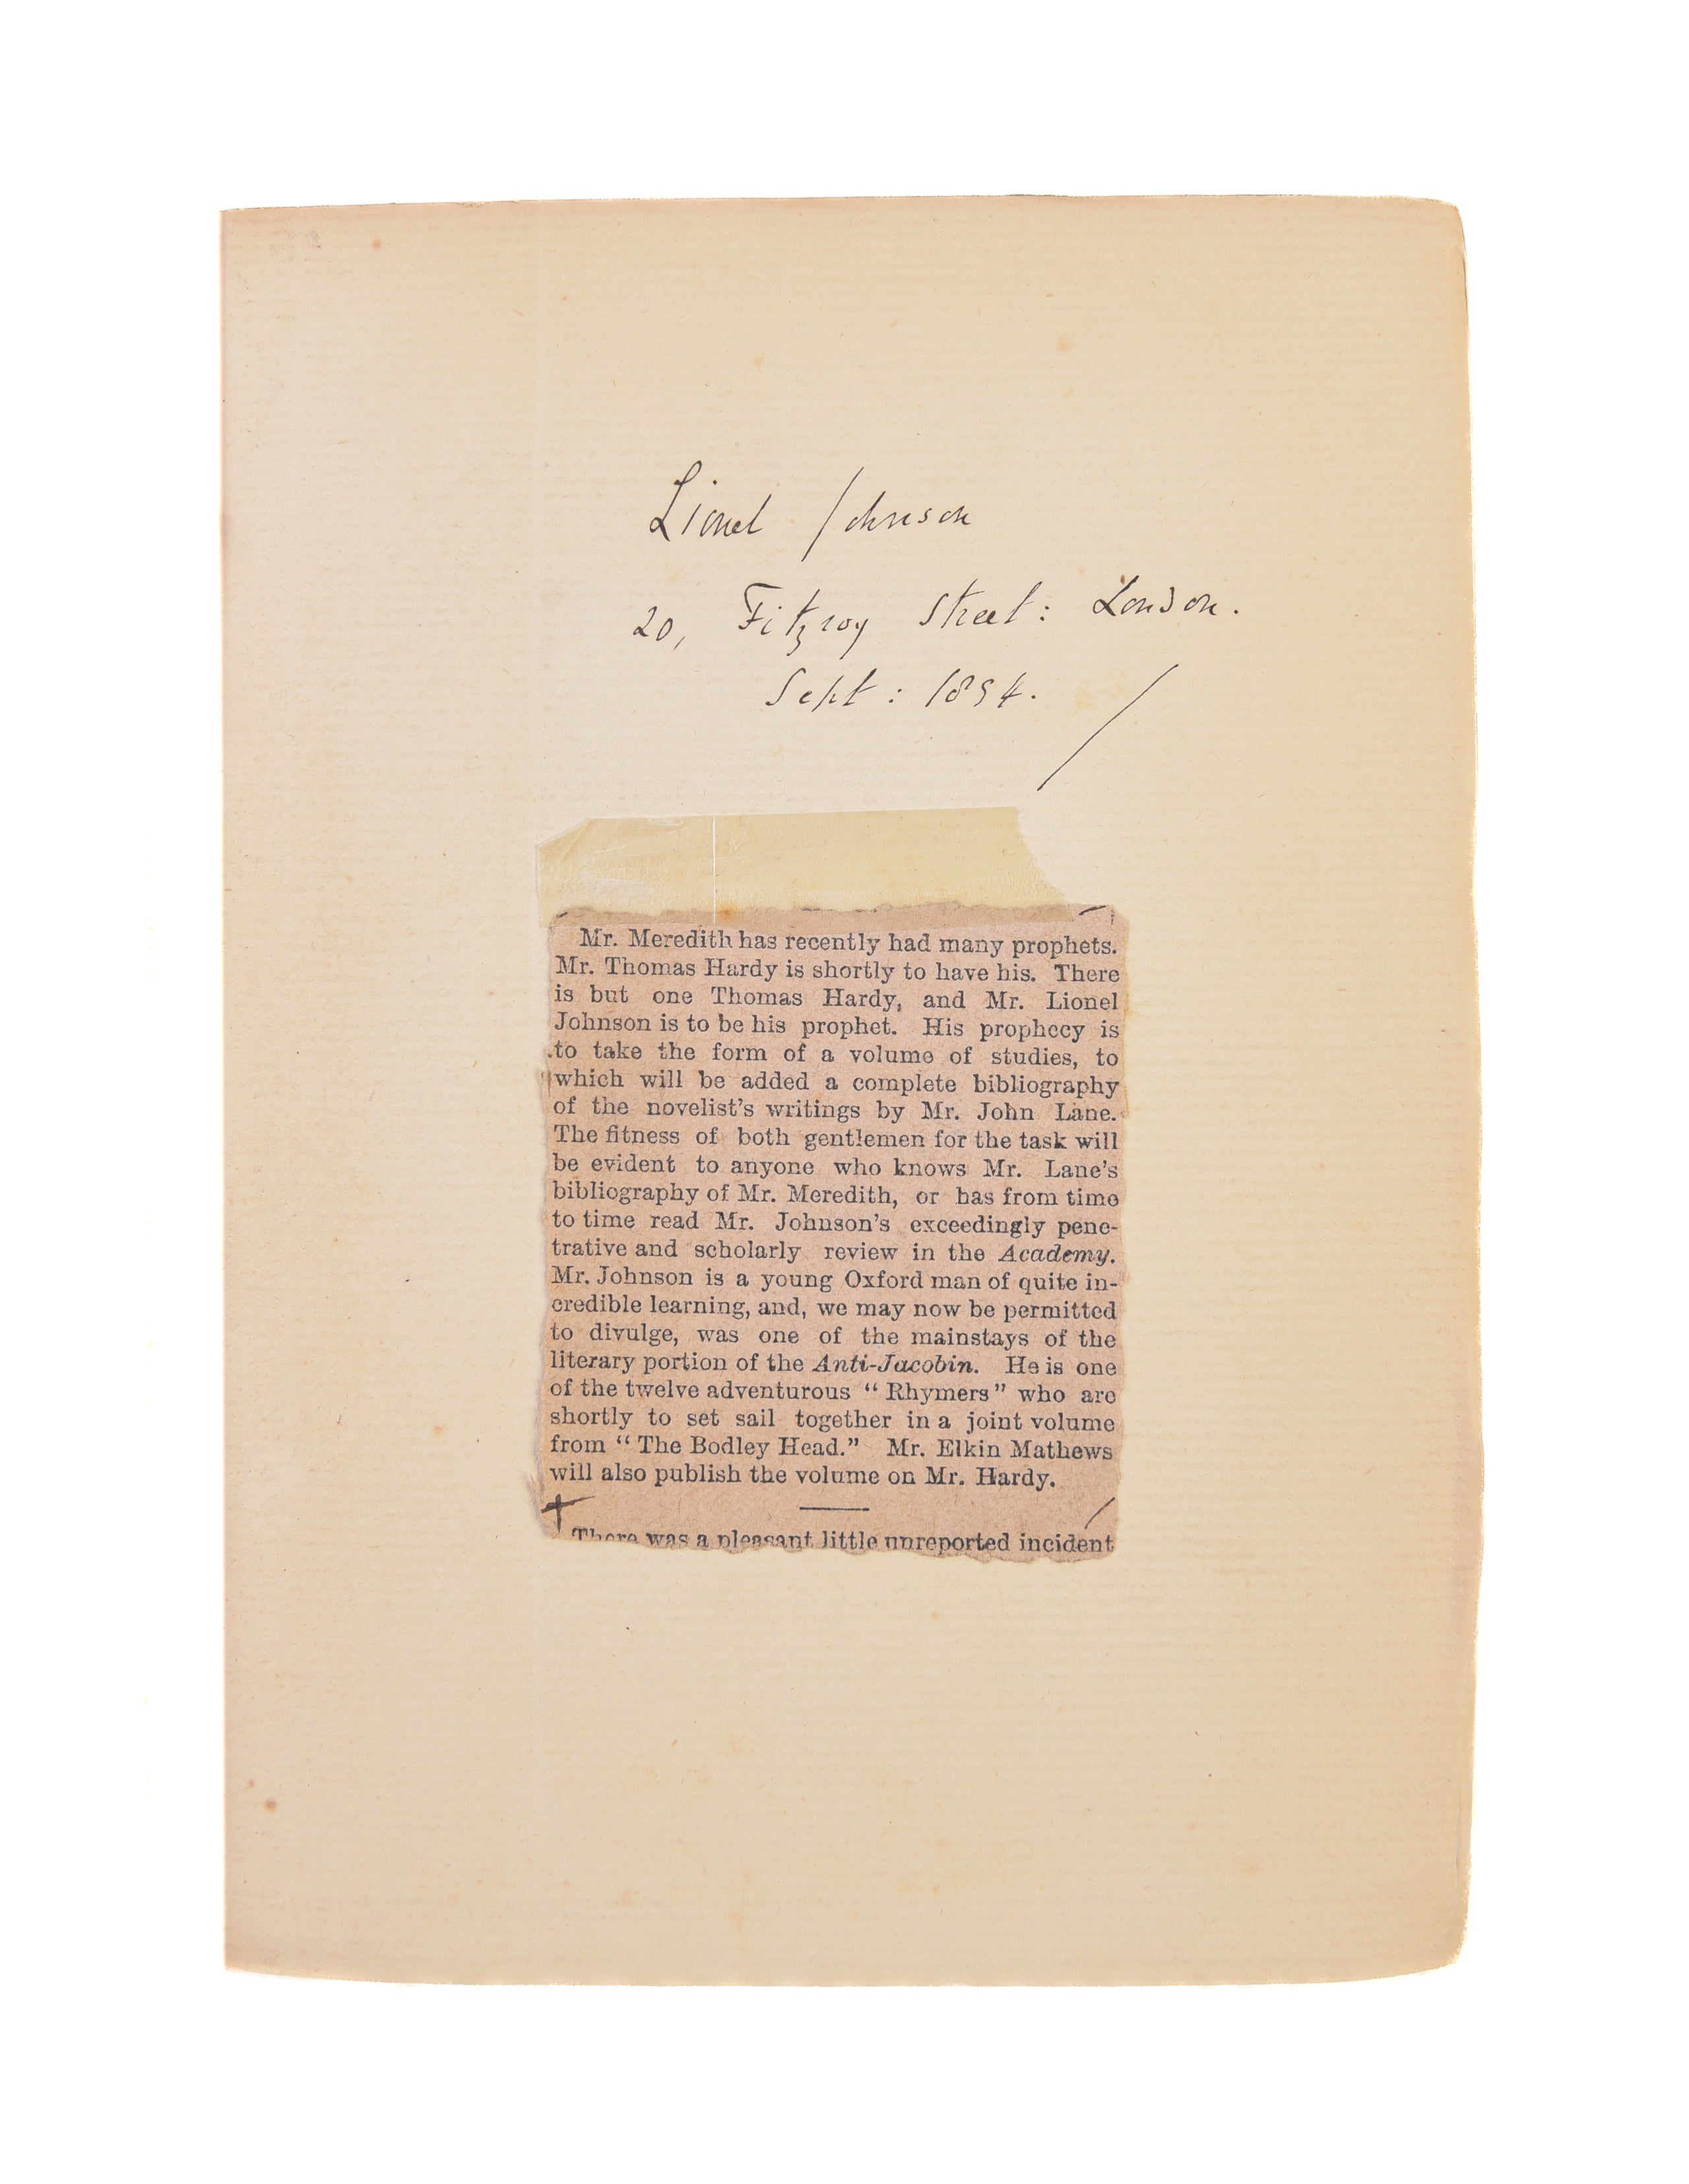 Lionel Johnson
20, Fitzroy Street: London.
Sept: 1894.
Mr. Meredith has recently had many prophets.
Mr. Thomas Hardy is shortly to have his. There
is but one Thomas Hardy, and Mr. Lionel
Johnson is to be his prophet. His prophecy is
to take the form of a volume of studies, to
which will be added a complete bibliography
of the novelist's writings by Mr. John Lane.
The fitness of both gentlemen for the task will
be evident to anyone who knows Mr. Lane's
bibliography of Mr. Meredith, or has from time
to time read Mr. Johnson's exceedingly pene-
trative and scholarly review in the Academy.
Mr. Johnson is a young Oxford man of quite in-
credible learning, and, we may now be permitted
to divulge, was one of the mainstays of the
literary portion of the Anti-Jacobin. He is one
of the twelve adventurous "Rhymers" who are
shortly to set sail together in a joint volume
from "The Bodley Head." Mr. Elkin Mathews
will also publish the volume on Mr. Hardy.
There was a pleasant little unreported incident